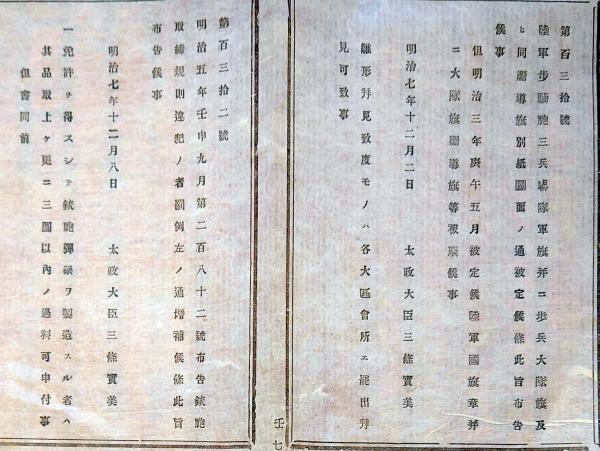 第百三拾號
陸軍步騎砲三兵聯隊軍旗并ニ步兵大隊旗及
ヒ同嚮導旗別紙圖面ノ通被定候條此旨布告
候事
但明治三年庚午五月被定候陸軍國旗章并
ニ大隊旗嚮導旗等被廢候事
明治七年十二月二日 太政大臣三條實美
雛形拜見致度モノハ各大區會所エ罷出拜
見可致事
第百三拾二號
明治五年壬申九月第二百八十二號布告銃砲
取締規則違犯ノ者罰例左ノ通增補候條此旨
布告候事
明治七年十二月八日 太政大臣三條實美
一免許ヲ得スシテ銃砲彈藥ヲ製造スル者ハ
其品取上ケ更ニ三圓以內ノ過料可申付事
但書同前
壬七